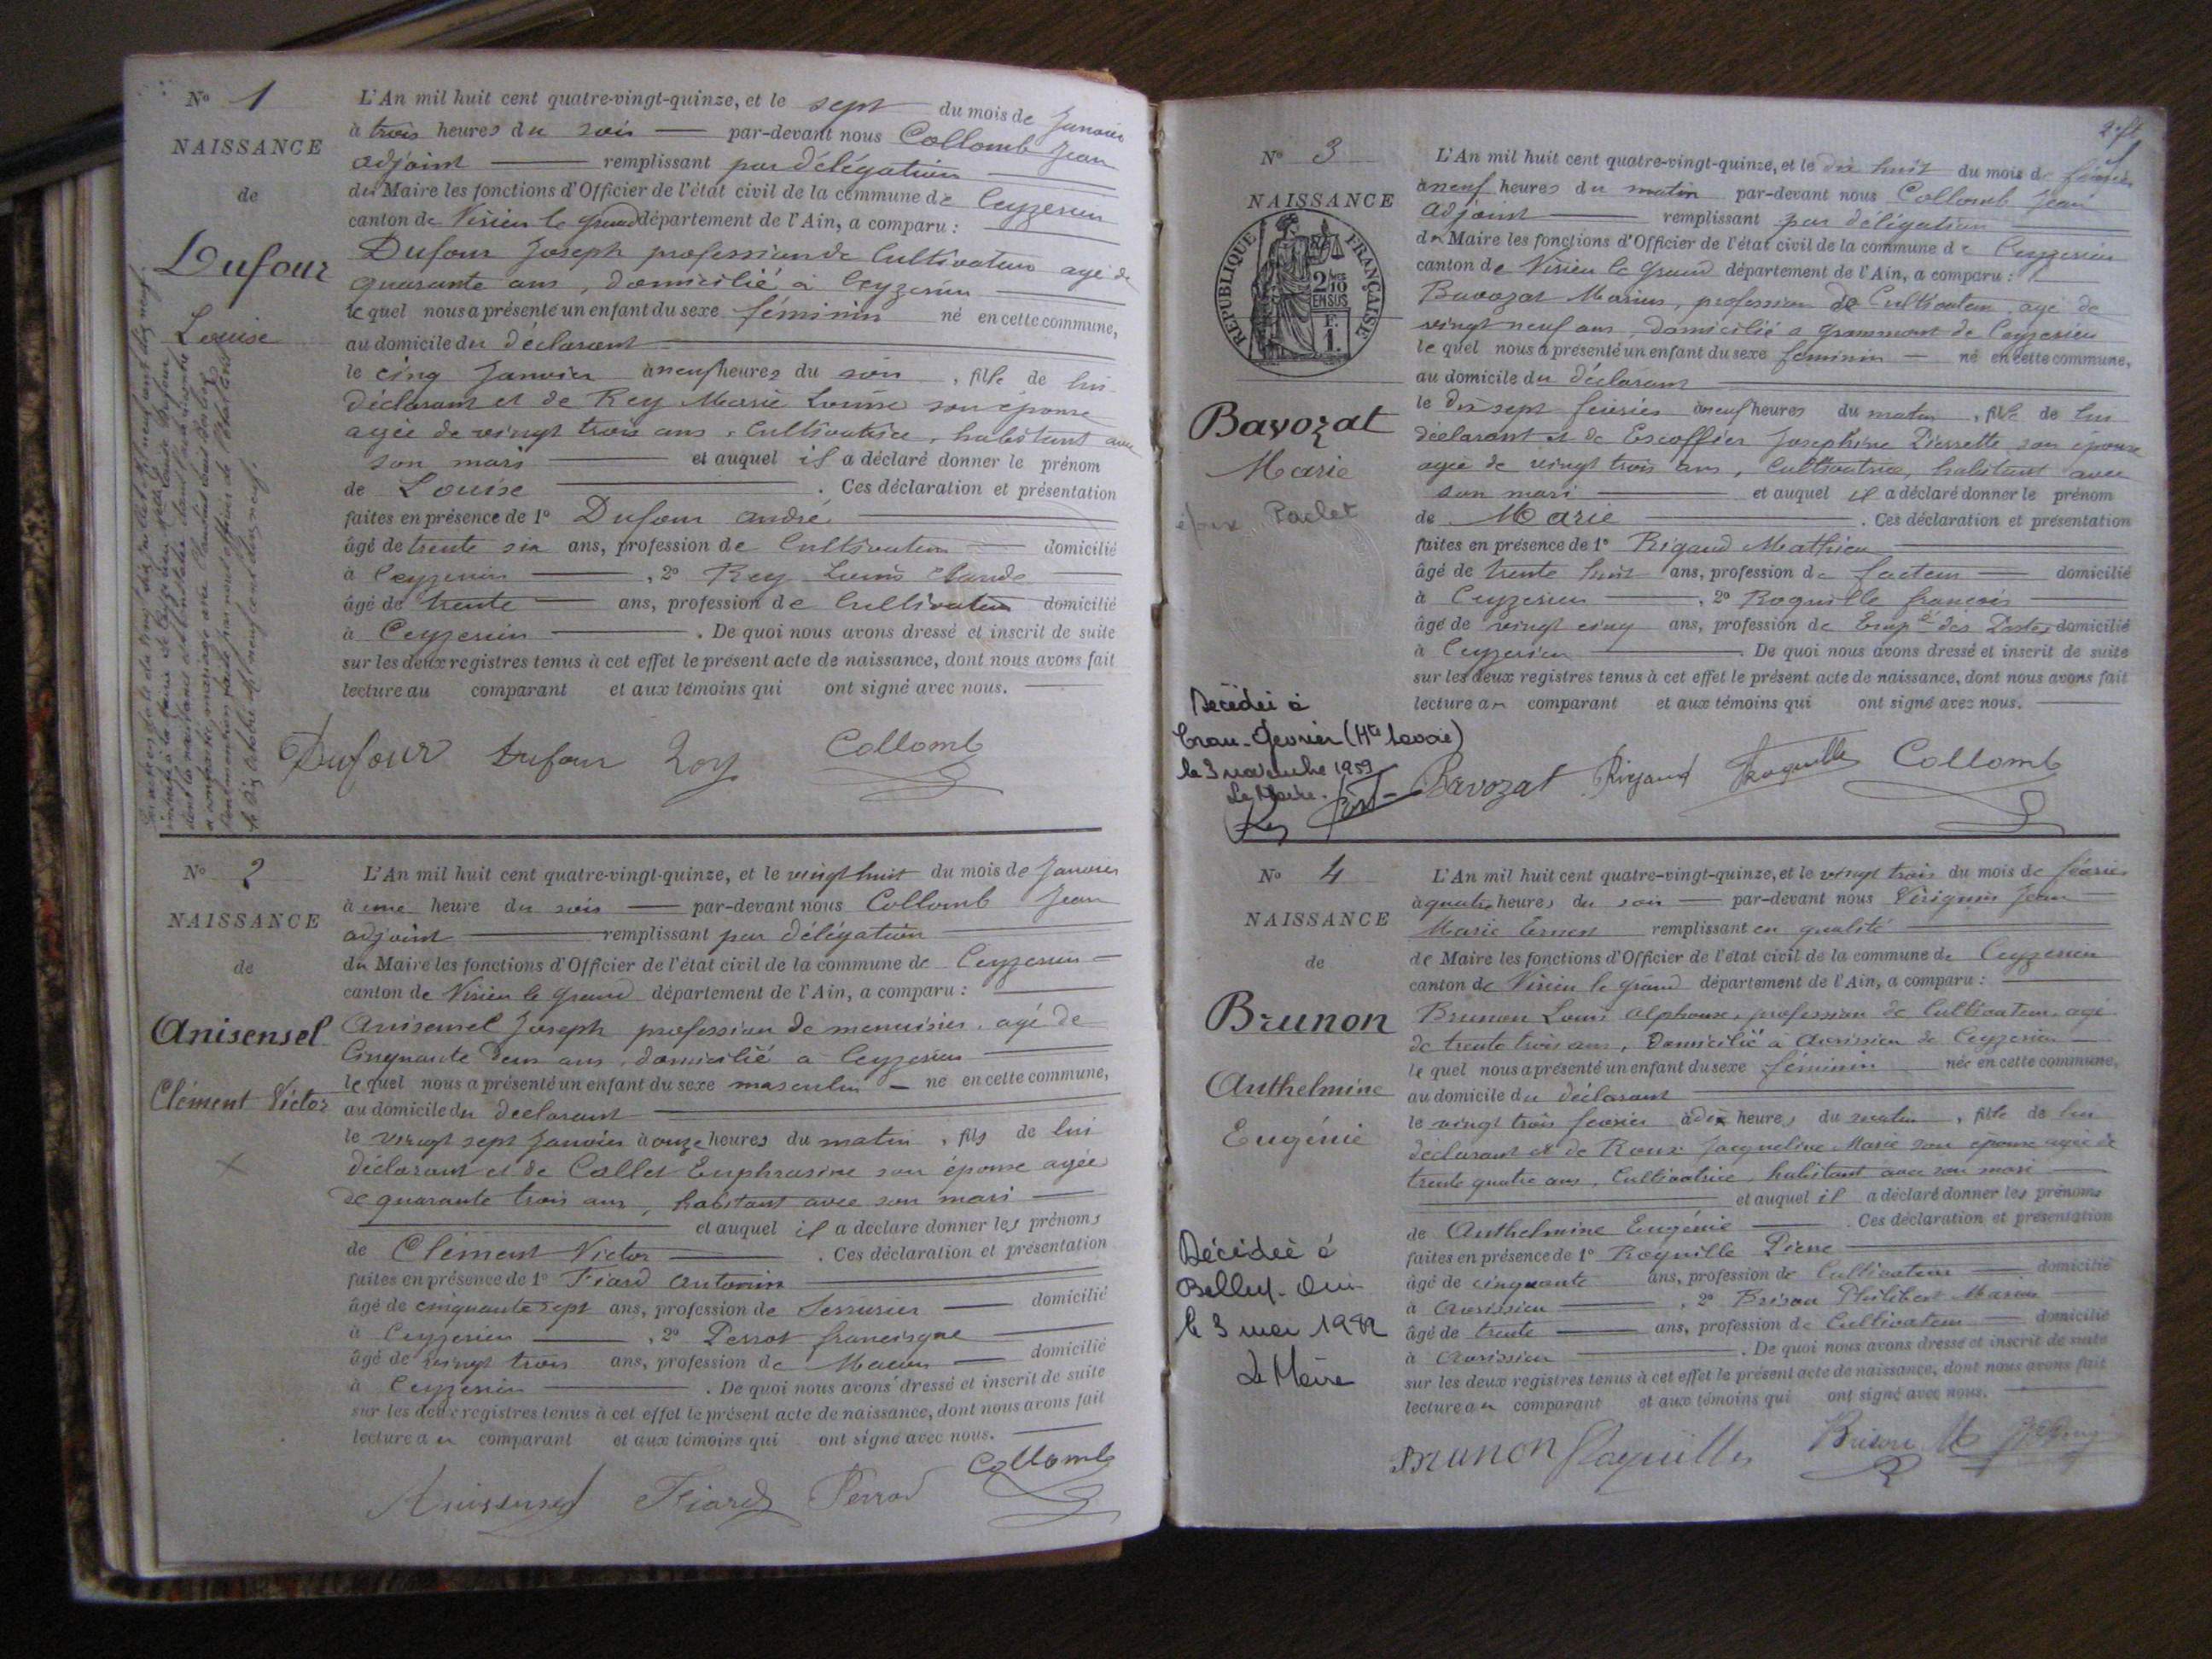 N° 1
NAISSANCE
de
Dufour
Louise
L'An mil huit cent quatre-vingt-quinze, et le sept du mois de Janvier
à trois heures du soir par-devant nous Collomb Jean
adjoint remplissant par délégation
du Maire les fonctions d'Officier de l'état civil de la commune de Ceyzerieu
canton de Virieu le Grand département de l'Ain, a comparu :
Dufour Joseph profession de Cultivateur agé de
quarante ans, domicilié à Ceyzerieu
lequel nous a présenté un enfant du sexe féminin né en cette commune,
au domicile du déclarant
le cinq Janvier à neuf heures du soir, fille de lui
déclarant et de Rey Marie Louise son épouse
agée de vingt trois ans, Cultivatrice, habitant avec
son mari et auquel il a déclaré donner le prénom
de Louise . Ces déclaration et présentation
faites en présence de 1° Dufour André
âgé de trente six ans, profession de Cultivateur domicilié
à Ceyzerieu , 2° Rey Louis Claude
âgé de trente ans, profession de Cultivateur domicilié
à Ceyzerieu . De quoi nous avons dressé et inscrit de suite
sur les deux registres tenus à cet effet le présent acte de naissance, dont nous avons fait
lecture au comparant et aux témoins qui ont signé avec nous.
Dufour Dufour Rey Collomb
N° 2
NAISSANCE
de
Anisensel
Clément Victor
L'An mil huit cent quatre-vingt-quinze, et le vingt huit du mois de Janvier
à une heure du soir par-devant nous Collomb Jean
adjoint remplissant par délégation
du Maire les fonctions d'Officier de l'état civil de la commune de Ceyzerieu
canton de Virieu le Grand département de l'Ain, a comparu :
Anisensel Joseph profession de menuisier, agé de
Cinquante deux ans, domicilié a Ceyzerieu
lequel nous a présenté un enfant du sexe masculin né en cette commune,
au domicile du declarant
le vingt sept Janvier à onze heures du matin, fils de lui
déclarant et de Callet Euphrasine son épouse agée
de quarante trois ans, habitant avec son mari
et auquel il a déclaré donner les prénoms
de Clément Victor . Ces déclaration et présentation
faites en présence de 1° Fiard Antonin
âgé de cinquante sept ans, profession de Serrurier domicilié
à Ceyzerieu , 2° Perrot francisque
âgé de vingt trois ans, profession de Macon domicilié
à Ceyzerieu . De quoi nous avons dressé et inscrit de suite
sur les deux registres tenus à cet effet le présent acte de naissance, dont nous avons fait
lecture au comparant et aux témoins qui ont signé avec nous.
Anisensel Fiard Perrot Collomb
N° 3
NAISSANCE
RÉPUBLIQUE FRANÇAISE
2/10
EN SUS
F.
1.
Bavozat
Marie
épouse Paclet
Décédée à
Cran-Gevrier (Hte Savoie)
le 3 novembre 1959
Le Maire.
L'An mil huit cent quatre-vingt-quinze, et le dix huit du mois de février
à neuf heures du matin par-devant nous Collomb Jean
adjoint remplissant par délégation
du Maire les fonctions d'Officier de l'état civil de la commune de Ceyzerieu
canton de Virieu le Grand département de l'Ain, a comparu :
Bavozat Marius, profession de Cultivateur, agé de
vingt neuf ans, domicilié a Grammont de Ceyzerieu
lequel nous a présenté un enfant du sexe féminin né en cette commune,
au domicile du déclarant
le dix sept février à neuf heures du matin, fille de lui
déclarant et de Escoffier Josephine Pierrette son épouse
agée de vingt trois ans, Cultivatrice, habitant avec
son mari et auquel il a déclaré donner le prénom
de Marie . Ces déclaration et présentation
faites en présence de 1° Rigaud Mathieu
âgé de trente huit ans, profession de facteur domicilié
à Ceyzerieu , 2° Roquille françois
âgé de vingt cinq ans, profession de Empé des Postes domicilié
à Ceyzerieu . De quoi nous avons dressé et inscrit de suite
sur les deux registres tenus à cet effet le présent acte de naissance, dont nous avons fait
lecture au comparant et aux témoins qui ont signé avec nous.
Bavozat Rigaud Roquille Collomb
N° 4
NAISSANCE
de
Brunon
Anthelmine
Eugénie
Décédée à
Belley. Ain
le 3 mai 1982
Le Maire
L'An mil huit cent quatre-vingt-quinze, et le vingt trois du mois de février
à quatre heures du soir par-devant nous Jean
Marie Ernest remplissant en qualité
de Maire les fonctions d'Officier de l'état civil de la commune de Ceyzerieu
canton de Virieu le Grand département de l'Ain, a comparu :
Brunon Louis Alphonse, profession de Cultivateur, agé
de trente trois ans, Domicilié a Avrissieu de Ceyzerieu
lequel nous a présenté un enfant du sexe féminin née en cette commune,
au domicile du déclarant
le vingt trois février à dix heures du matin, fille de lui
déclarant et de Roux Jacqueline Marie son épouse agée de
trente quatre ans, Cultivatrice, habitant avec son mari
et auquel il a déclaré donner les prénoms
de Anthelmine Eugénie . Ces déclaration et présentation
faites en présence de 1° Roquille Pierre
âgé de cinquante ans, profession de Cultivateur domicilié
à Avrissieu , 2° Brison Philibert Marius
âgé de trente ans, profession de Cultivateur domicilié
à Avrissieu . De quoi nous avons dressé et inscrit de suite
sur les deux registres tenus à cet effet le présent acte de naissance, dont nous avons fait
lecture au comparant et aux témoins qui ont signé avec nous.
Brunon Roquille Brison M